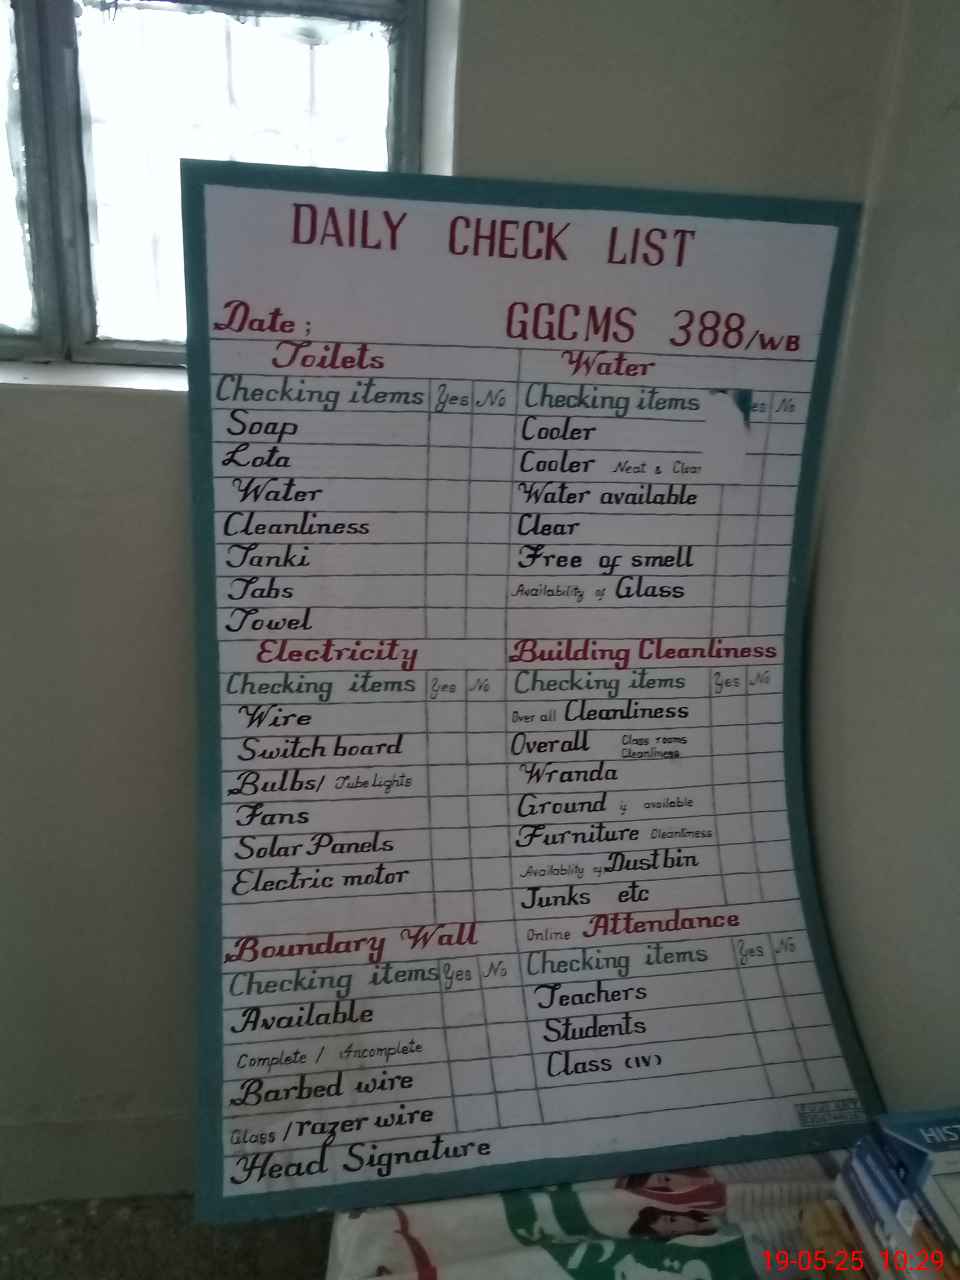 DAILY CHECK LIST
Date ; GGCMS 388/WB
Toilets Water
Checking items Yes No Checking items es No
Soap Cooler
Lota Cooler Neat & Clean
Water Water available
Cleanliness Clear
Tanki Free of smell
Tabs Availability of Glass
Towel
Electricity Building Cleanliness
Checking items Yes No Checking items Yes No
Wire Over all Cleanliness
Switch board Overall Class rooms Cleanliness
Bulbs/ Tube Lights Wranda
Fans Ground if available
Solar Panels Furniture Cleanliness
Electric motor Availablity of Dustbin
Junks etc
Boundary Wall Online Attendance
Checking items Yes No Checking items Yes No
Available Teachers
Complete / Incomplete Students
Barbed wire Class (IV)
Glass / razer wire
Head Signature
HIST
19-05-25 10:29